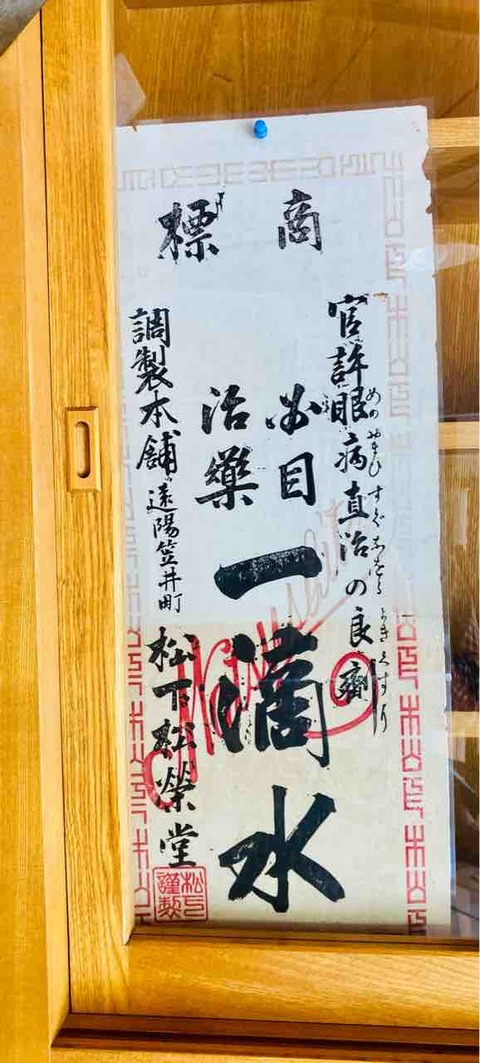 商標
官許眼病直治の良劑
めの やまひ すぐ よき くすり
必治
目藥
一滴水
調製本舖 遠陽笠井町 松下松榮堂
謹製